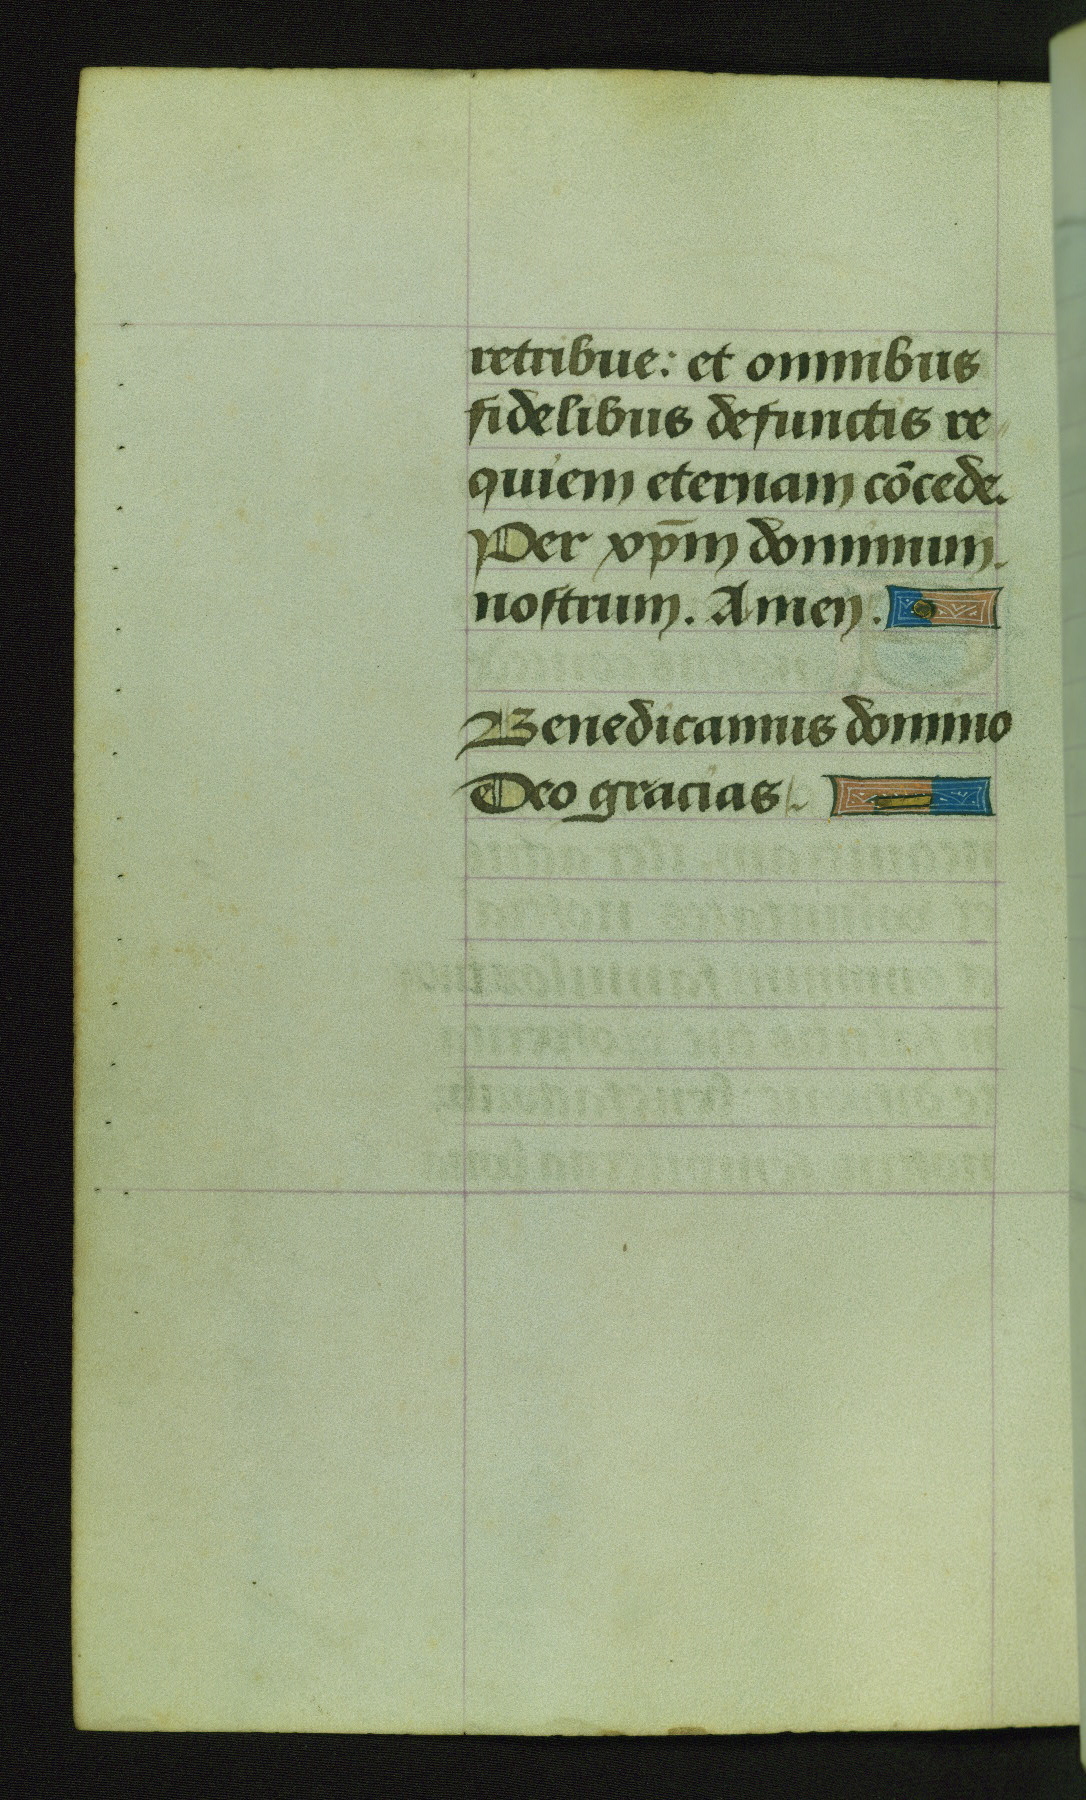 retribue: et omnibus
fidelibus defunctis re
quiem eternam cōcede.
Per xp̄m dominum.
nostrum. Amen.
Benedicamus domino
Deo gracias.